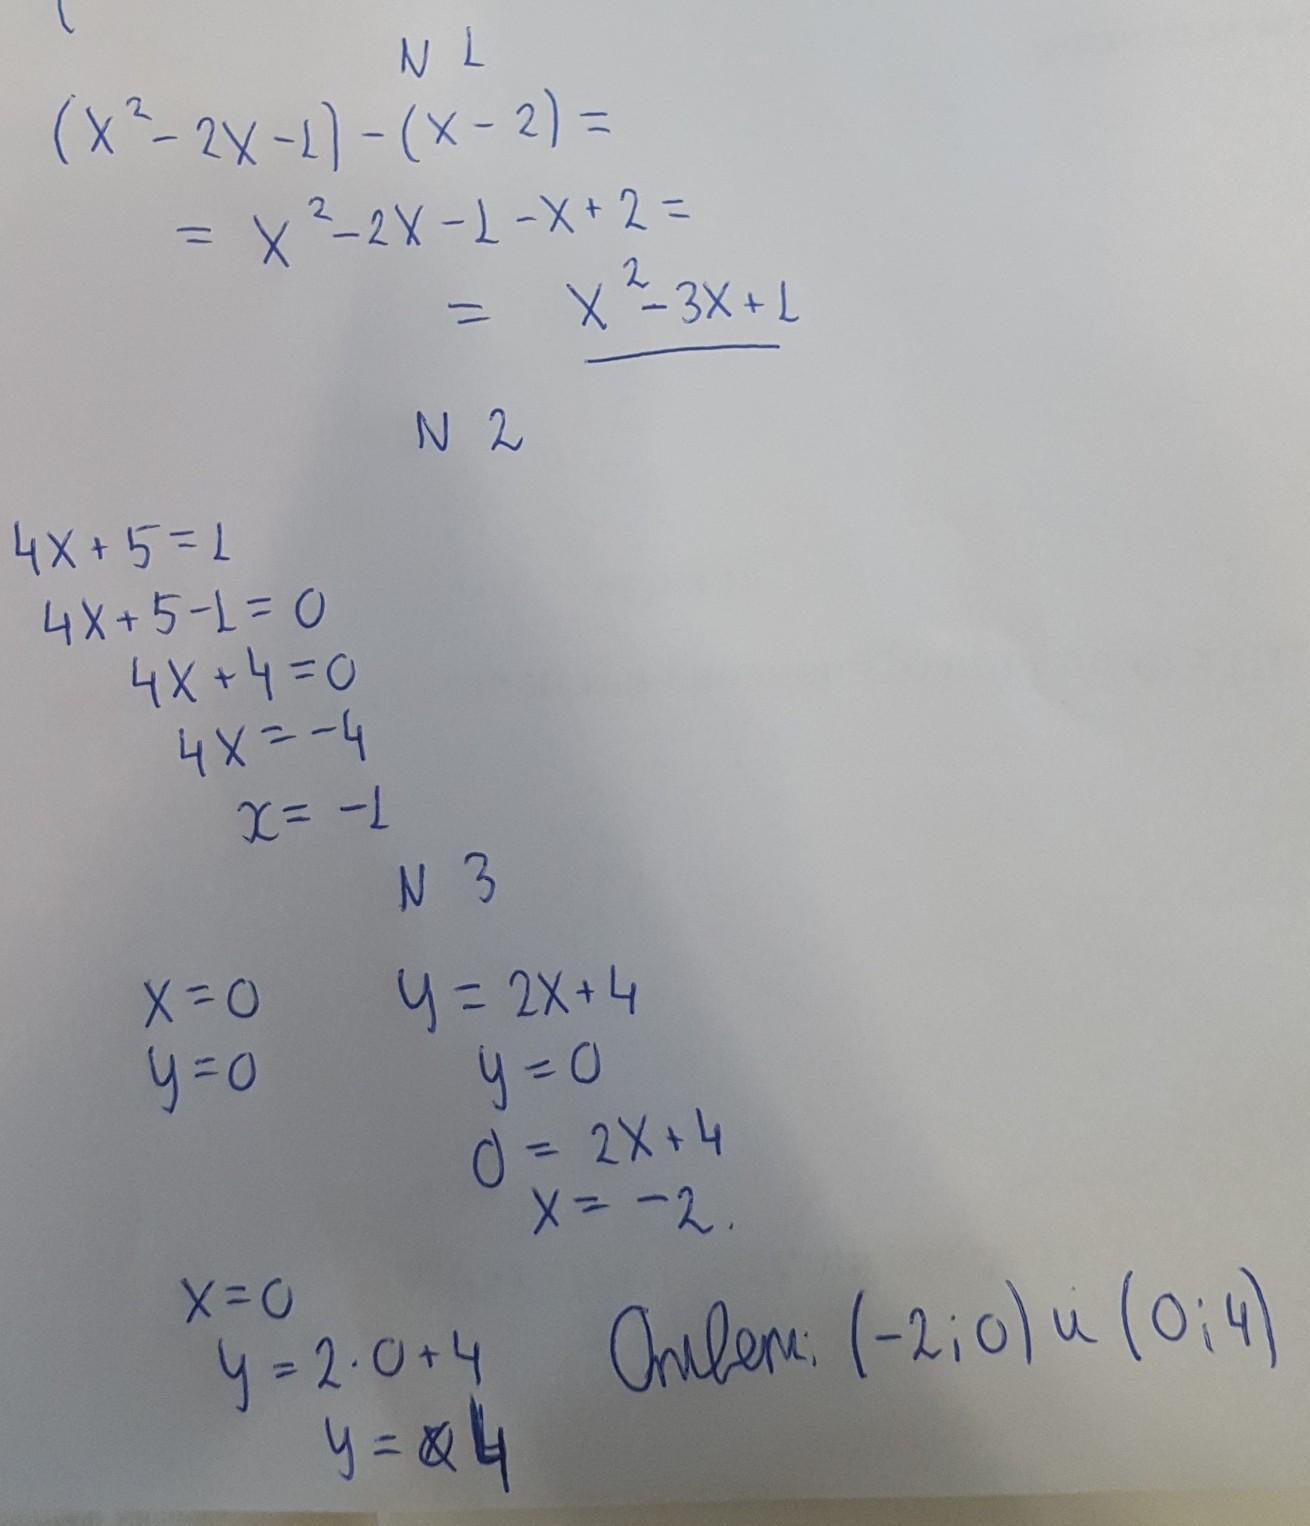 N 1
(x²-2x-1)-(x-2)=
= x²-2x-1-x+2=
= x²-3x+1
N 2
4x+5=1
4x+5-1=0
4x+4=0
4x=-4
x=-1
N 3
x=0
y=0
y=2x+4
y=0
0=2x+4
x=-2.
x=0
y=2·0+4
y=4
Ответ: (-2;0) и (0;4)